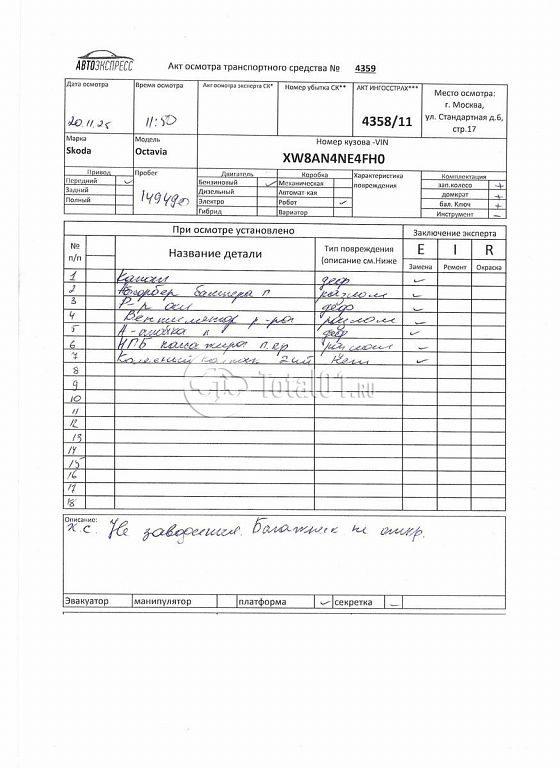 АВТОЭКСПРЕСС
Акт осмотра транспортного средства № 4359
Дата осмотра Время осмотра Акт осмотра эксперта СК* Номер убытка СК** АКТ ИНГОССТРАХ*** Место осмотра:
20.11.25 11:50 4358/11 г. Москва, ул. Стандартная д.6, стр.17
Марка Модель Номер кузова -VIN
Skoda Octavia XW8AN4NE4FH0
Привод Пробег Двигатель Коробка Характеристика повреждения Комплектация
Передний ✓ 149490 Бензиновый ✓ Механическая зап.колесо +
Задний Дизельный Автомат-кая домкрат +
Полный Электро Робот ✓ бал. Ключ +
Гибрид Вариатор Инструмент –
При осмотре установлено Заключение эксперта
№ п/п Название детали Тип повреждения (описание см.Ниже E I R
Замена Ремонт Окраска
1 Капот деф ✓
2 Абсорбер бампера п разлом ✓
3 деф ✓
4 Вентилятор р-ра разлом ✓
5 п деф ✓
6 НПБ пассажира п.ер разлом ✓
7 Колесный колпак нет ✓
8
9
10
11
12
13
14
15
16
17
18
Total01.RU
Описание:
х.с. Не заводится. Багажник не откр.
Эвакуатор манипулятор платформа ✓ секретка –